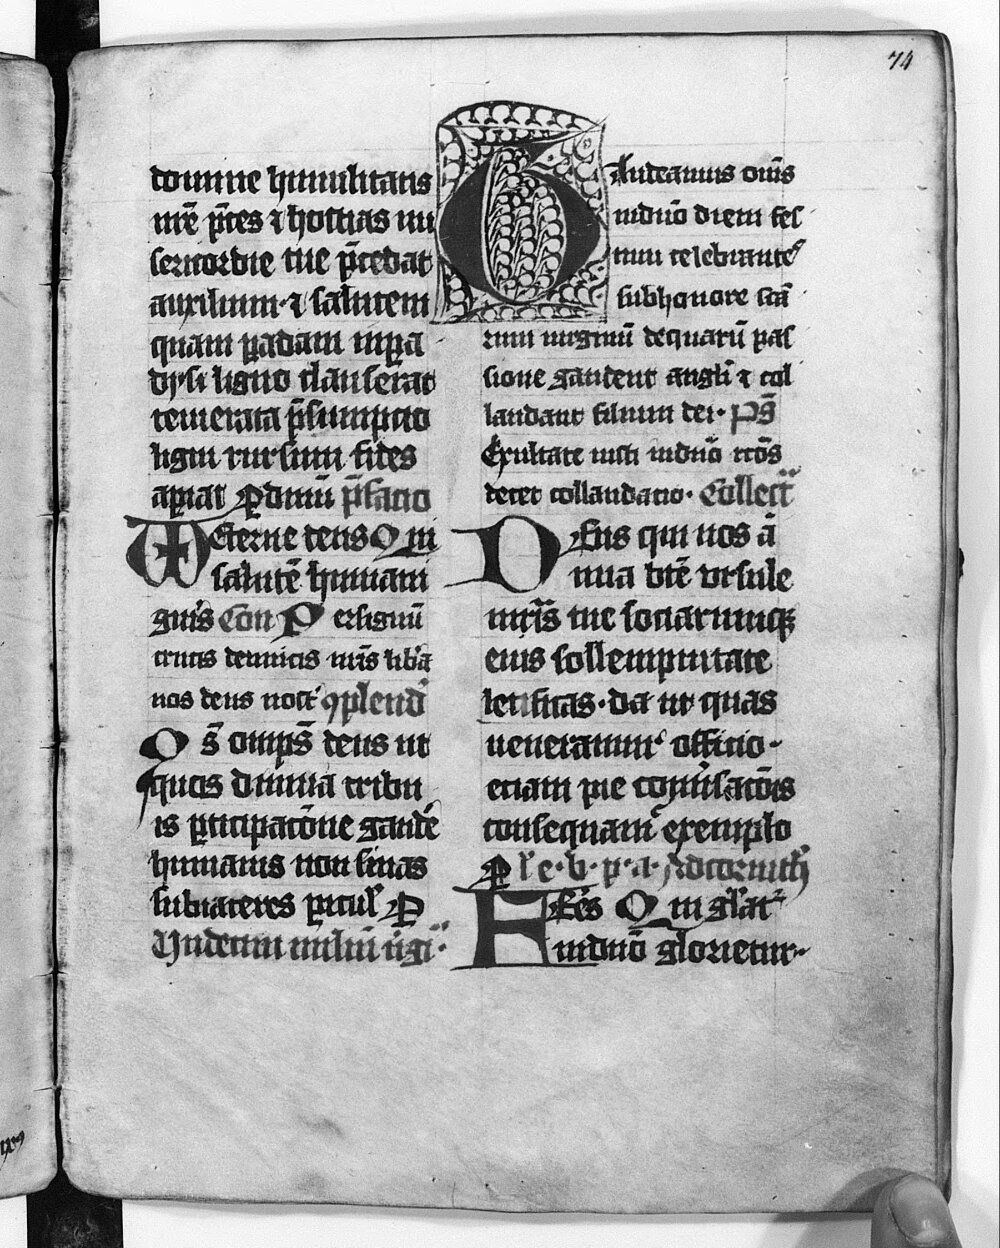 74
domine humilitatis
nr̄e p̄ces ⁊ hostias mi
sericordie tue p̄cedat
auxilium · ⁊ salutem
quam ꝑadam in ꝑa
dysi ligno clauserat
temerata p̄sumptio
ligni rursum fides
aꝑiat P̱ dnm̄ p̄facio
VD Eterne deus Qui
salutē humani
gn̄is Com̄ Per signū
crucis deinimicis nr̄is lib̓a
nos deus nost̓ ꝯplend̓
Q s̄ omps̄ deus ut
quos diuina tribu
is ꝑticipatōne gaudē
humanis non sinas
subiacere ꝑicul̓ P̱
Undecim miliū u̓gi
Gaudeamus om̄s
in dn̄o diem fes
tum celebrantes
sub honore scā
rum uirginū de quarū pas
sione gaudent angl̓i ⁊ col
laudant filium dei · Ps̄
Exultate iusti in dn̄o rcōs
decet collaudatio · Collect̄
DEus qui nos ā
nua btē vrsule
uirḡis tue sociarumqꝫ
eius sollempnitate
letificas · da ut quas
ueneramur officio ·
etiam pie conūsatōis
consequamur exemplo
P̱ l e · v · p · a · Ad corinth̓
FRēs Qui gl̓at᷑
in dn̄o glorietur ·